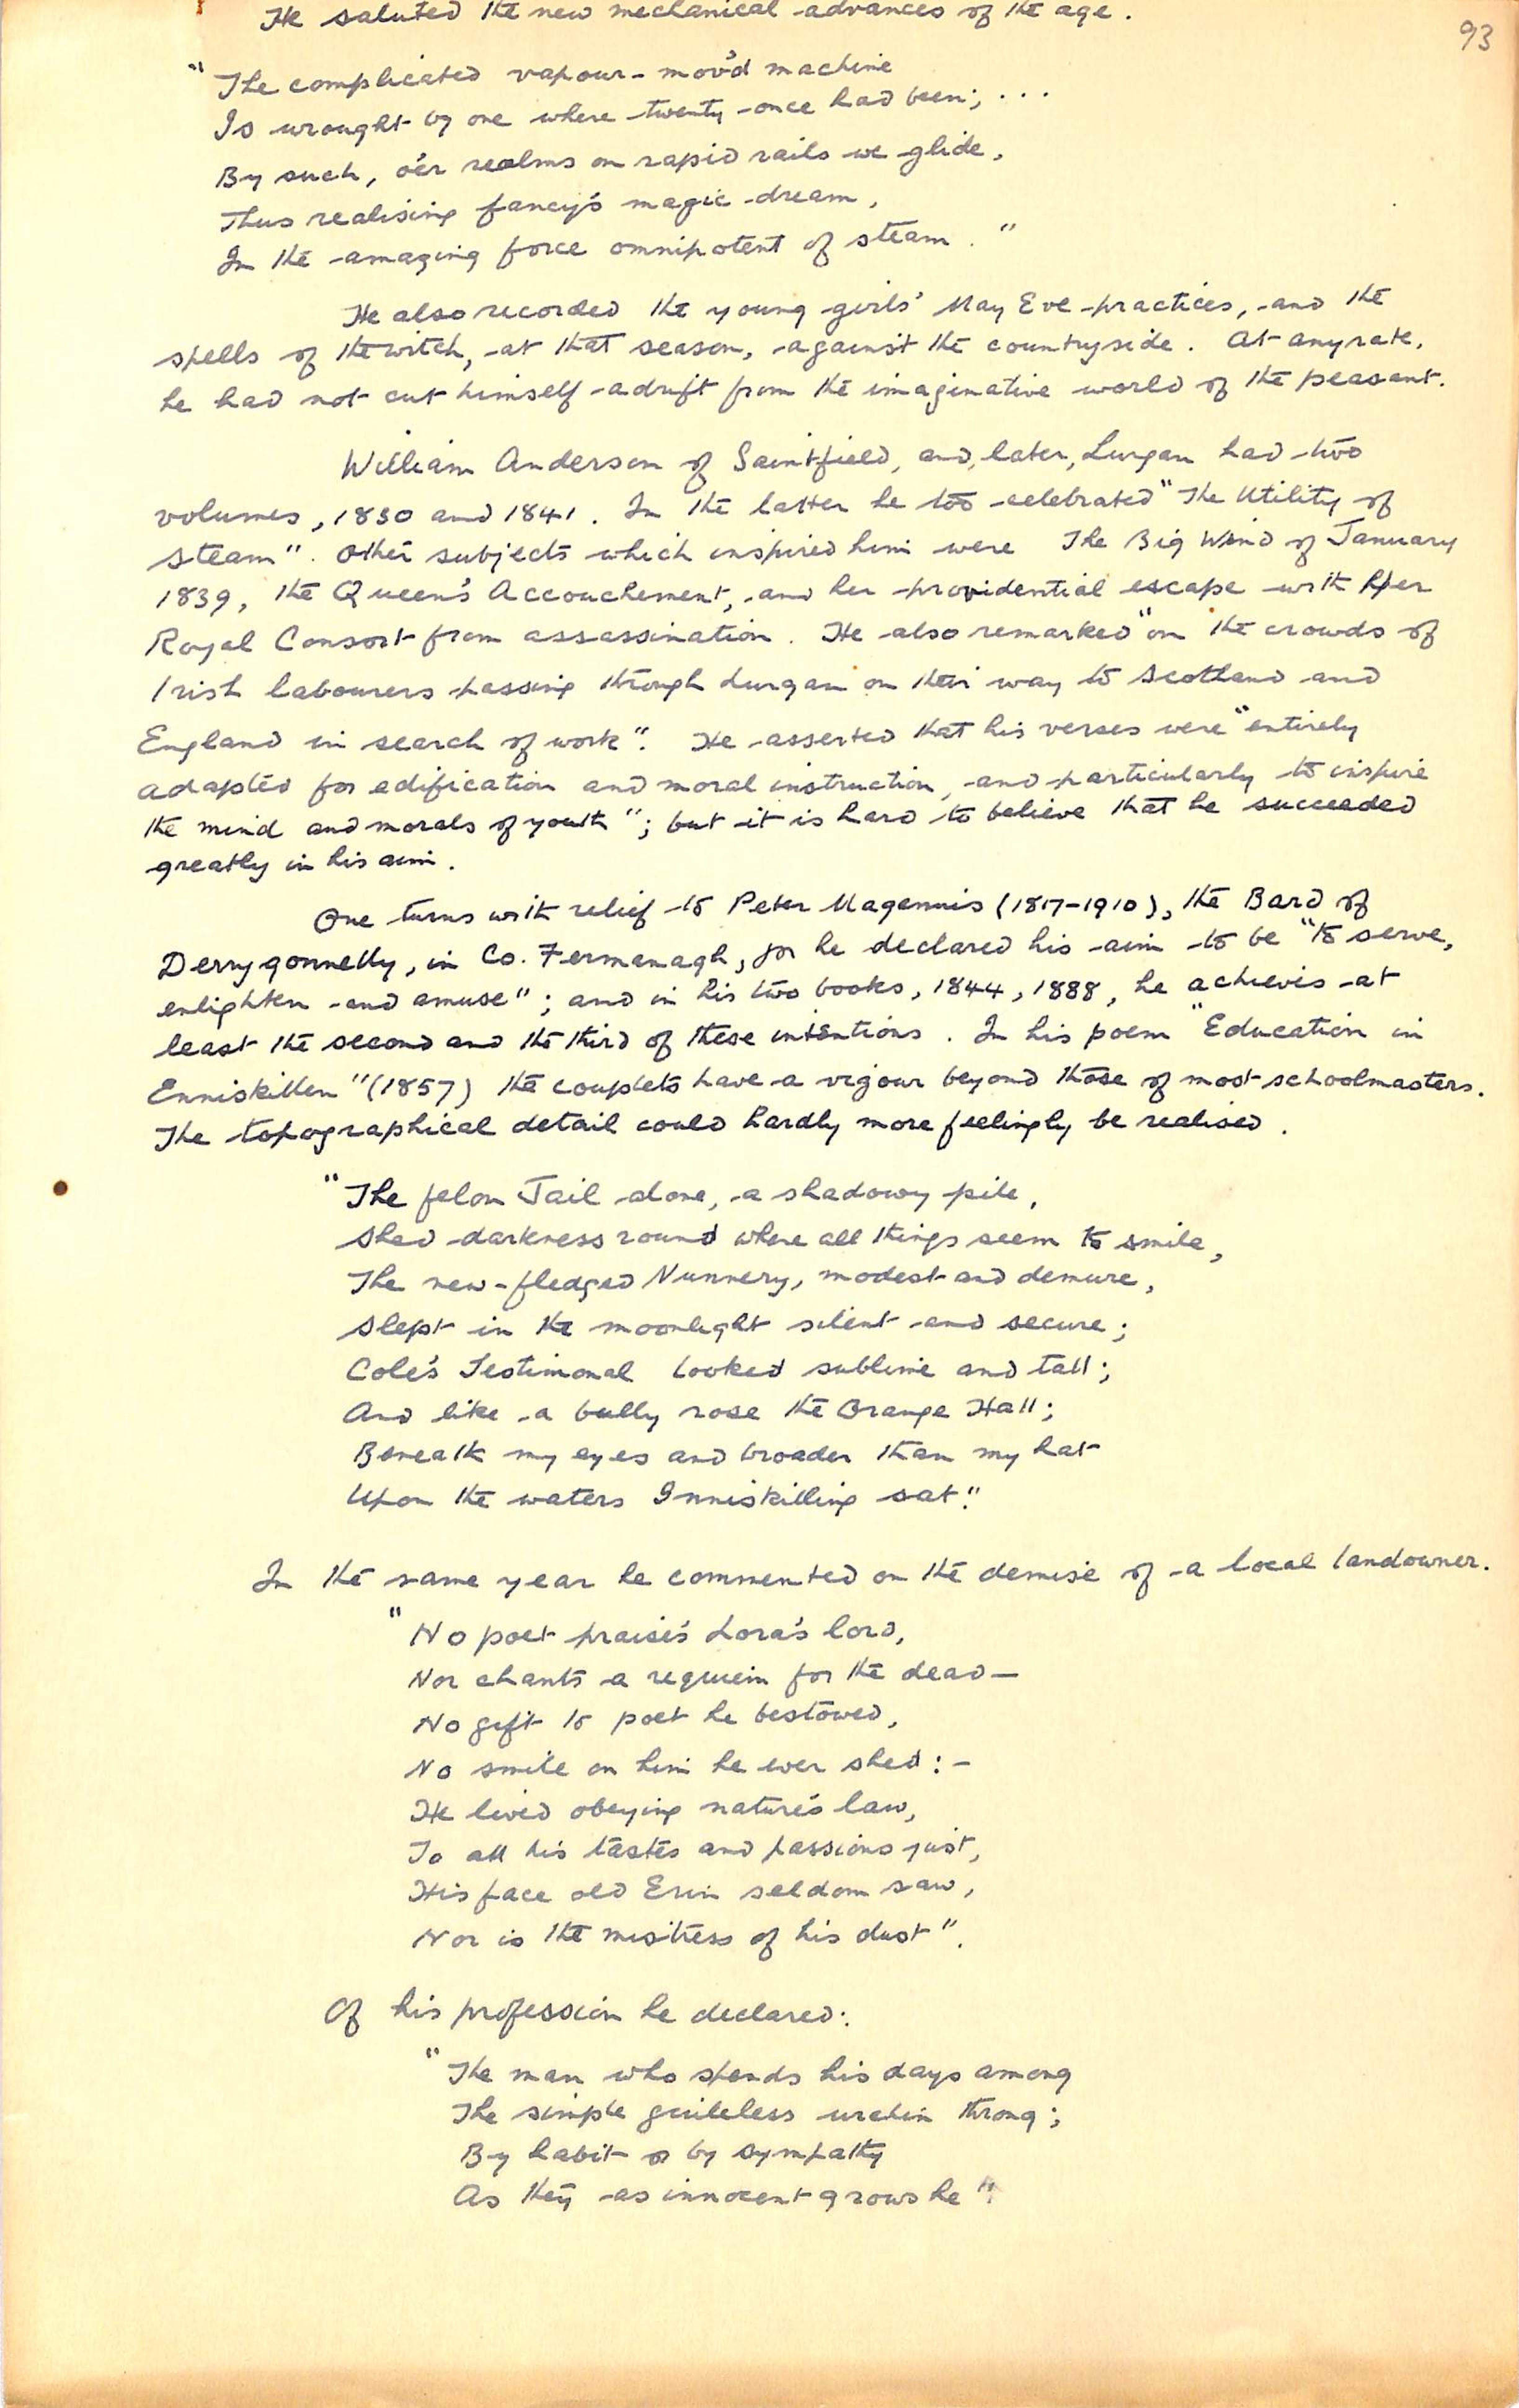 93
He saluted the new mechanical advances of the age.
"The complicated vapour-mov'd machine
Is wrought by one where twenty once had been; . . .
By such, o'er realms on rapid rails we glide,
Thus realising fancy's magic dream,
In the amazing force omnipotent of steam."
He also recorded the young girls' May Eve practices, and the
spells of the witch, at that season, against the countryside. At anyrate,
he had not cut himself adrift from the imaginative world of the peasant.
William Anderson of Saintfield, and, later, Lurgan had two
volumes, 1830 and 1841. In the latter he too celebrated "The Utility of
Steam". Other subjects which inspired him were The Big Wind of January
1839, the Queen's Accouchement, and her providential escape with Her
Royal Consort from assassination. He also remarked "on the crowds of
Irish labourers passing through Lurgan on their way to Scotland and
England in search of work". He asserted that his verses were "entirely
adapted for edification and moral instruction, and particularly to inspire
the mind and morals of youth"; but it is hard to believe that he succeeded
greatly in his aim.
One turns with relief to Peter Magennis (1817-1910), the Bard of
Derrygonnelly, in Co. Fermanagh, for he declared his aim to be "to serve,
enlighten and amuse"; and in his two books, 1844, 1888, he achieves at
least the second and the third of these intentions. In his poem "Education in
Enniskillen" (1857) the couplets have a vigour beyond those of most schoolmasters.
The topographical detail could hardly more feelingly be realised.
"The felon Jail alone, a shadowy pile,
Shed darkness round where all things seem to smile,
The new-fledged Nunnery, modest and demure,
Slept in the moonlight silent and secure;
Cole's Testimonal looked sublime and tall;
And like a bully rose the Orange Hall;
Beneath my eyes and broader than my hat
Upon the waters Inniskilling sat."
In the same year he commented on the demise of a local landowner.
"No poet praises Lora's lord,
Nor chants a requiem for the dead—
No gift to poet he bestowed,
No smile on him he ever shed:-
He lived obeying nature's law,
To all his tastes and passions just,
His face old Erin seldom saw,
Nor is the mistress of his dust".
Of his profession he declared:
"The man who spends his days among
The simple guileless urchin throng;
By habit or by sympathy
As they as innocent grows he".